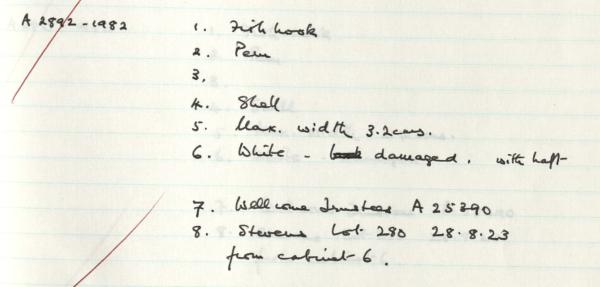 A 2892-1982
1. Fish hook
2. Peru
3.
4. Shell
5. Max. width 3.2cms.
6. White - damaged. with haft
7. Wellcome Trustees A 25390
8. Stevens Lot 280 28.8.23
from cabinet 6.